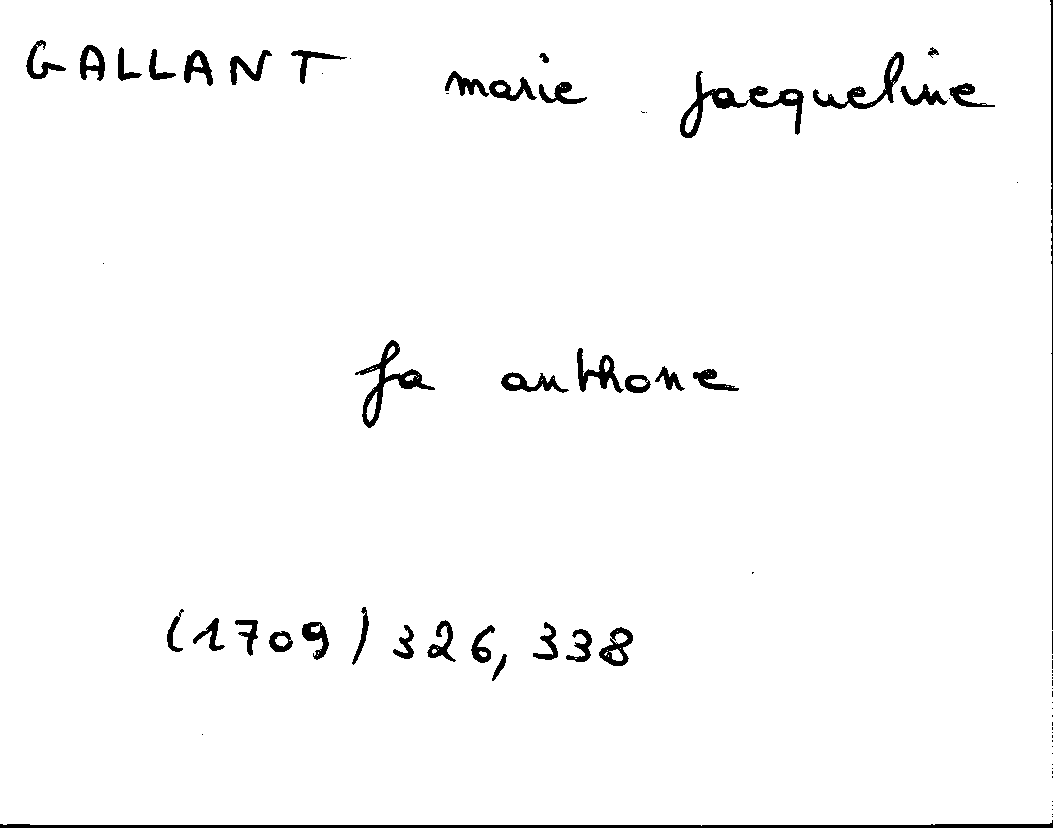 GALLANT marie jacqueline
fa anthone
(1709) 326, 338